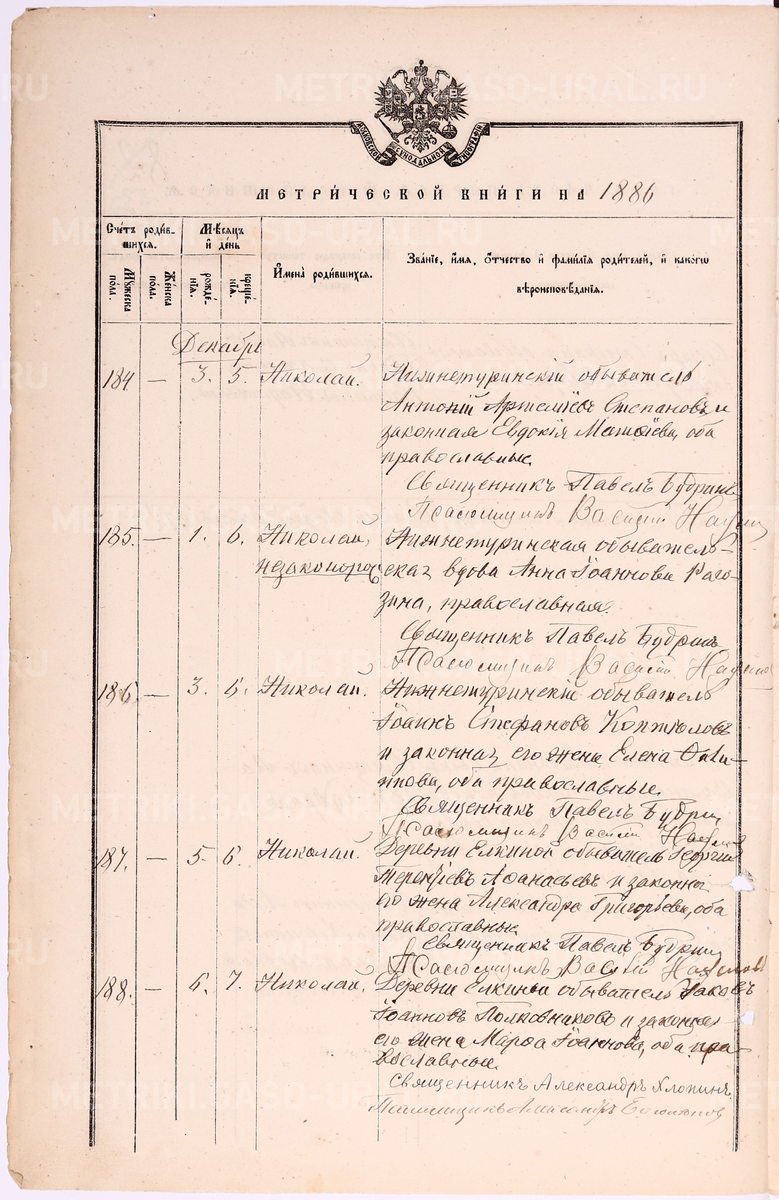 METRICS.GASO-URAL.RU
МОСКОВСКОЙ СѴНОДАЛЬНОЙ ТИПОГРАФІИ
МЕТРИ́ЧЕСКОЙ КНИ́ГИ НА 1886
Сче́тъ роди́в-
шихся.
М҃ѣсяцъ
и҆ де́нь
Мꙋ́жеска
по́ла.
Же́нска
по́ла.
рожде́-
нїя.
креще́-
нїя.
И҆мена̀ роди́вшихся.
Зва́нїе, и҆́мя, ѻ҆́тчество и҆ фами́лїя роди́телей, и҆ како́гѡ
вѣроисповѣ́данїя.
Декабрь
184 — 3. 5. Николай. Нижнетуринскій обыватель
Антоній Артеміевъ Степановъ и
законная Евдокія Матѳіева, оба
православные.
Священникъ Павелъ Будринъ
Псаломщикъ Василій
185. — 1. 6. Николай, Нижнетуринская обыватель-
незаконорож ская вдова Анна Іоаннова Раго-
зина, православная.
Священникъ Павелъ Будринъ
Псаломщикъ Василій
186. — 3. 6. Николай. Нижнетуринскій обыватель
Іоаннъ Стефановъ
и законная его жена Елена
оба православные.
Священникъ Павелъ Будрин
Псаломщикъ Василій
187. — 5. 6. Николай. Деревни Елкиной обыватель Георгій
Терентіевъ Аѳанасьевъ и законная
его жена Александра Григорьева, оба
православные.
Священникъ Павелъ Будрин
Псаломщикъ Василій
188. — 6. 7. Николай. Деревни Елкиной обыватель Іаковъ
Іоанновъ Полковниковъ и законная
его жена Марѳа Іоаннова, оба пра-
вославные.
Священникъ Александръ Хлопинъ.
Псаломщикъ Александръ